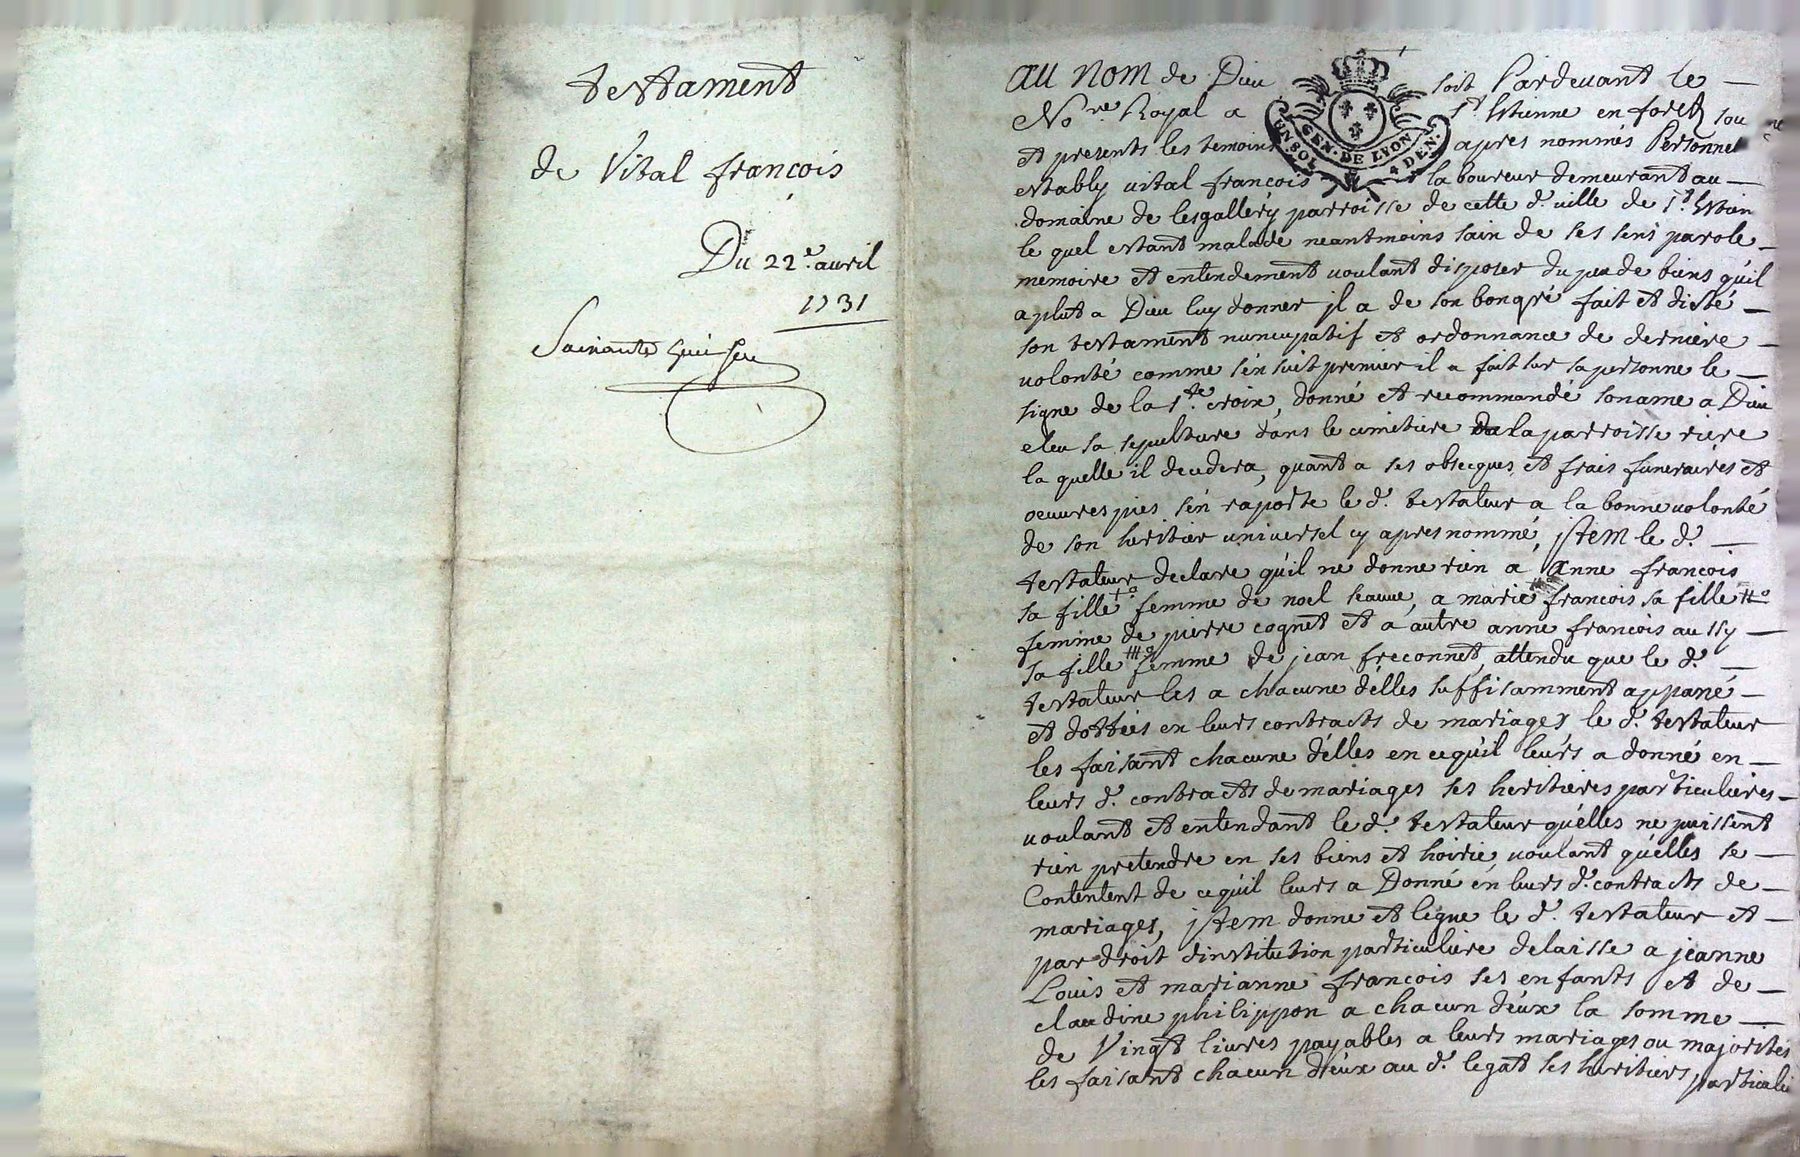 testament
de Vital françois
Du 22e. avril
1731
au nom de Dieu soit Pardevant le
Nore. Royal a St. Estienne en forest sou
et presents les temoins apres nommés Personnel
GEN. DE LYON
UN. SOL 4 DEN.
estably vital françois laboureur demeurant au
domaine de lesgallery parroisse de cette d. ville de St. Estien
le quel estant malade neantmoins sain de ses sens parole
memoire et entendement voulant disposer du peu de biens qu'il
a plut a Dieu luy donner jl a de son bon gré fait et dicté
son testament nuncupatif et ordonnance de derniere
volonté comme s'en suit premier il a fait sur sa personne le
signe de la ste. croix, donné et recommandé son ame a Dieu
eleu sa sepulture dans le cimetiere de la parroisse riere
la quelle il decedera, quant a ses obseques et frais funeraires et
oeuvres pies s'en raporte le d. testateur a la bonne volonté
de son heritier universel cy apres nommé, jtem le d.
testateur declare qu'il ne donne rien a anne françois
sa fille femme de noel seauve, a marie françois sa fille
femme de pierre cognet et a autre anne francois aussy
sa fille femme de jean freconnet, attendu que le d.
testateur les a chacune d'elles suffisamment appané
et dottées en leurs contracts de mariages le d. testateur
les faisant chacune d'elles en ce qu'il leurs a donné en
leurs d. contracts de mariages ses heritieres particulieres
voulant et entendant le d. testateur qu'elles ne puissent
rien pretendre en ses biens et hoirie, voulant qu'elles se
Contentent de ce qu'il leurs a Donné en leurs d. contracts de
mariages, jtem donne et legue le d. testateur et
par droit d'institution particuliere delaisse a jeanne
Louis et marianne françois ses enfants et de
claudine philippon a chacun d'eux la somme
de Vingt livres payables a leurs mariages ou majorités
les faisant chacun d'eux au d. legat ses heritiers particulie